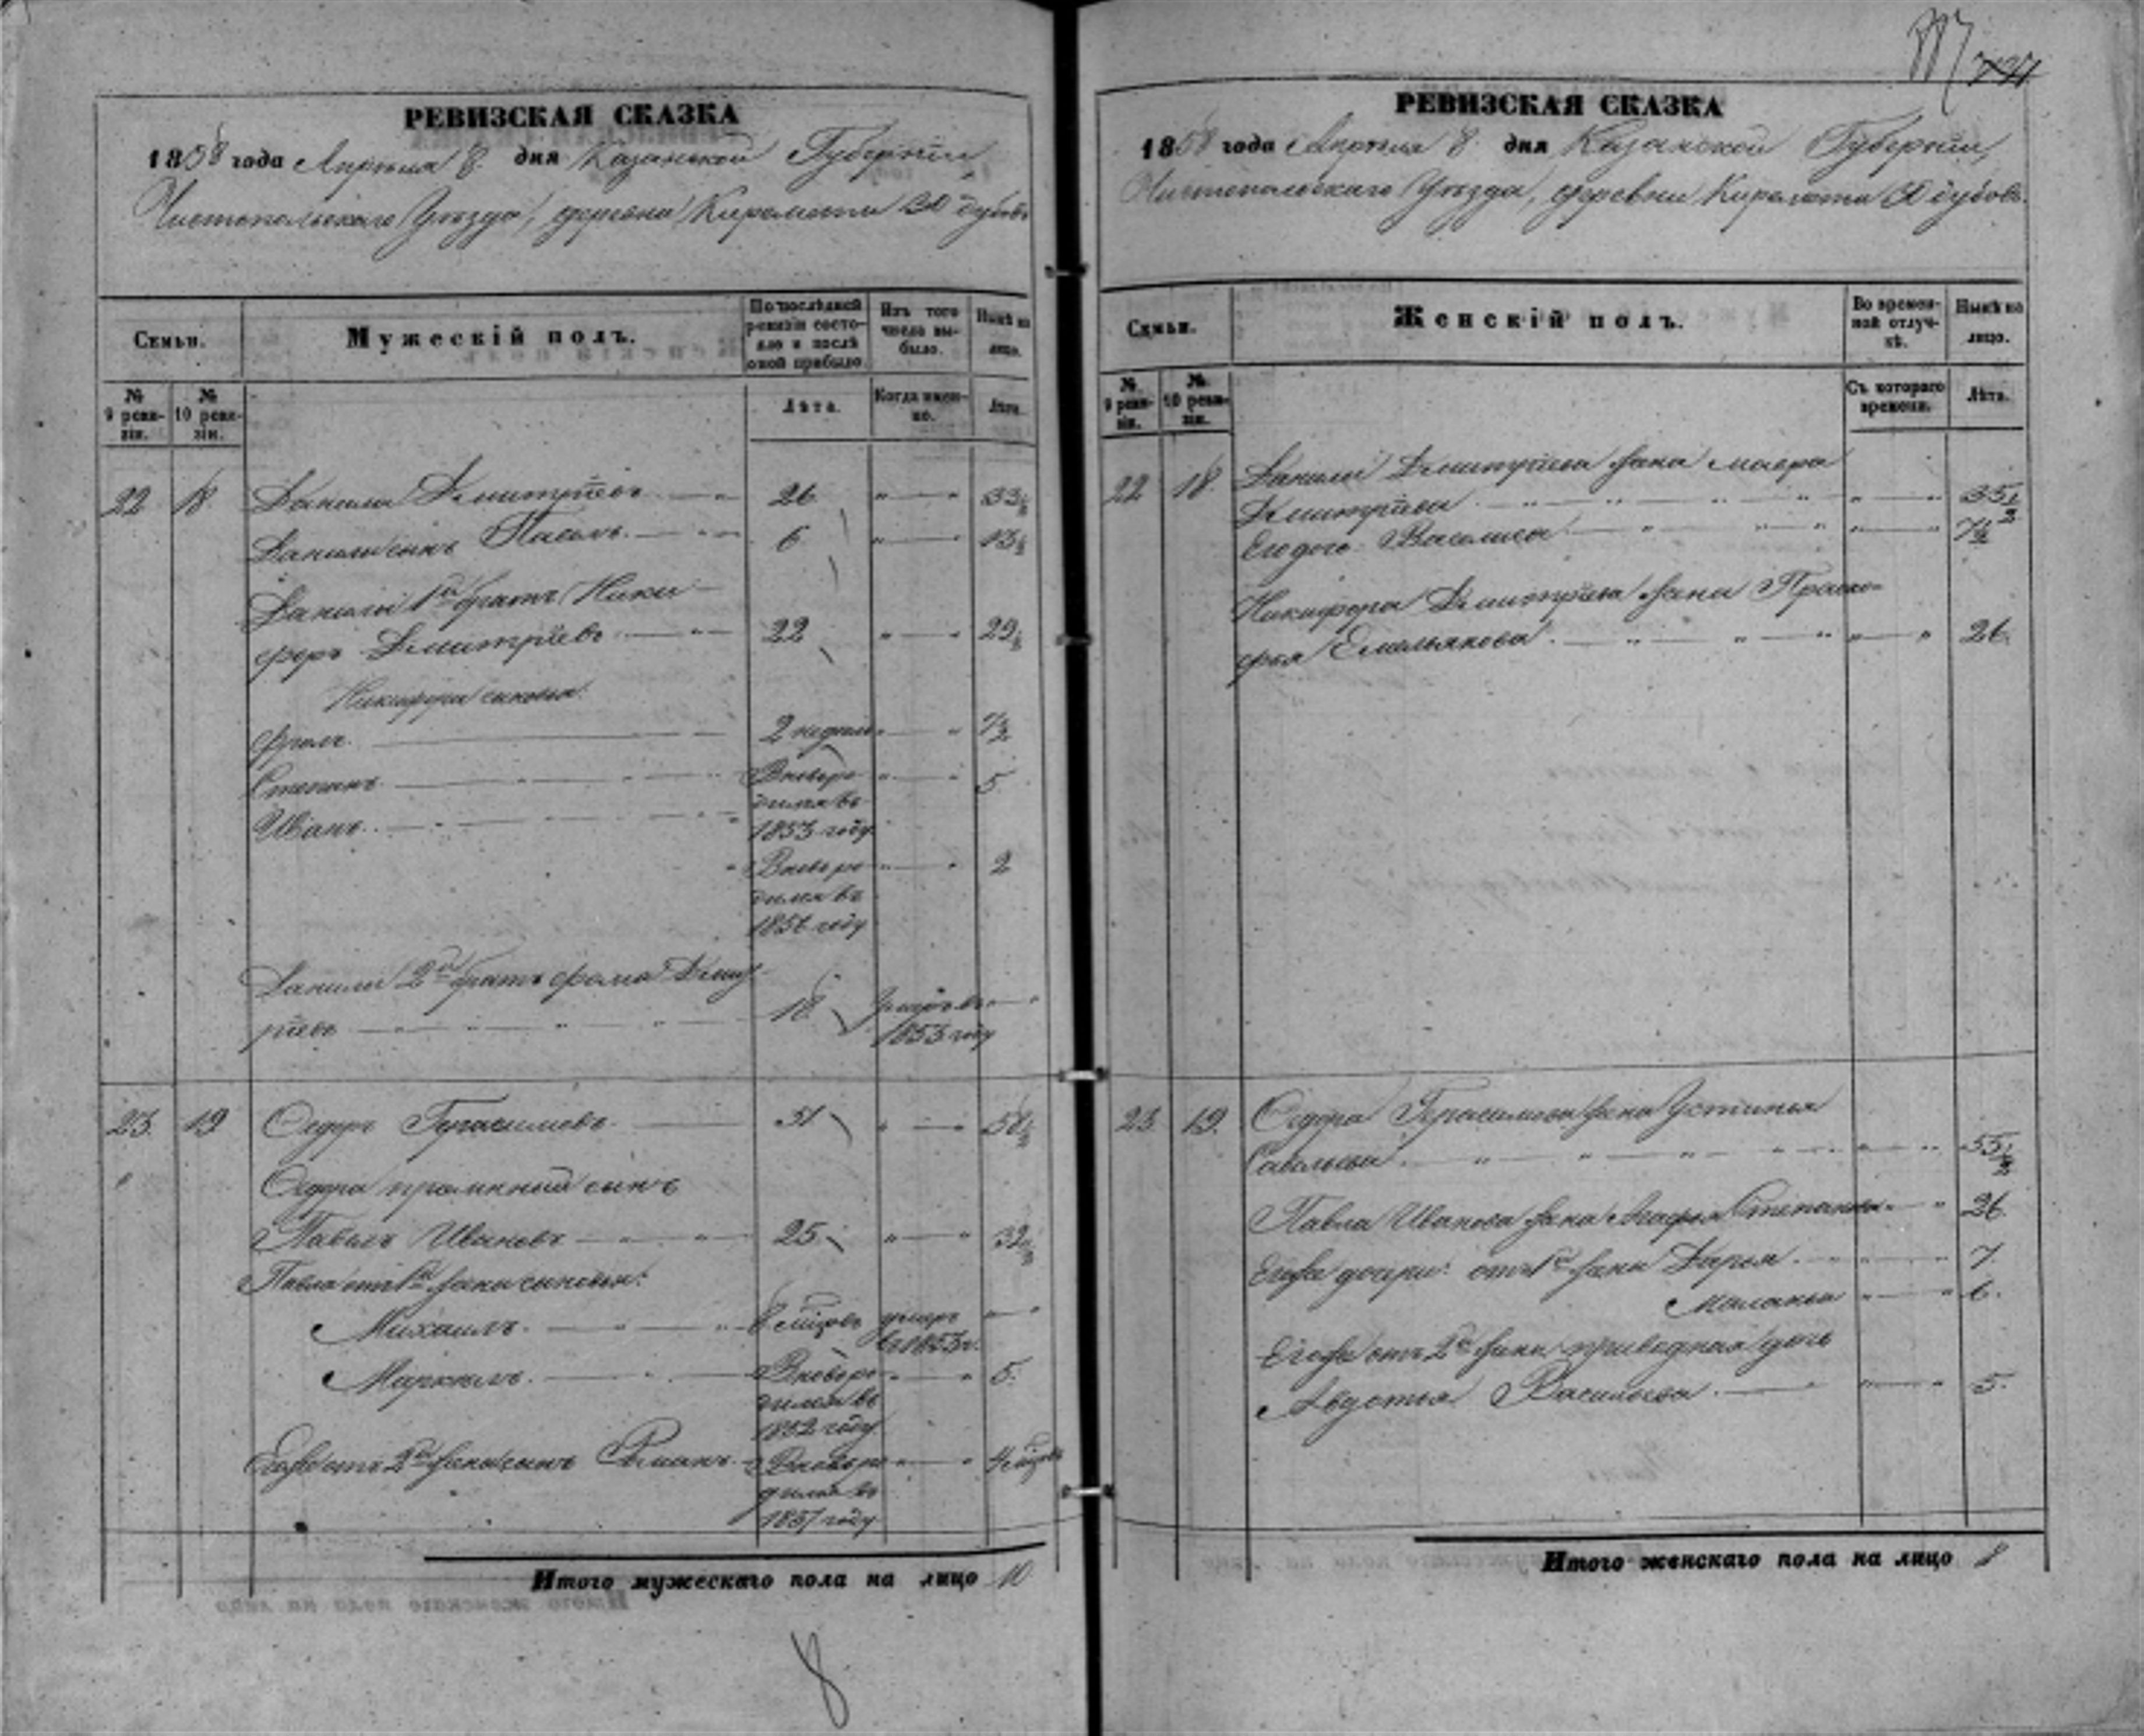 РЕВИЗСКАЯ СКАЗКА
1858 года Апрѣля 8 дня Казанской Губерніи,
Чистопольскаго Уѣзда, деревни Киремети дубовъ
Семьи.
Мужескій полъ.
По послѣдней ревизіи состояло и послѣ оной прибыло.
Изъ того числа выбыло.
Нынѣ на лицо.
№ 9 ревизіи.
№ 10 ревизіи.
Лѣта.
Когда именно.
Лѣта.
22 18 Данила Дмитріевъ 26 33½
Данилы сынъ 6 13½
Данилы 1й братъ Ники-
форъ Дмитріевъ 22 29½
Никифора сыновья:
Фролъ 2 недѣль 7½
Степанъ Вновъ ро- 5
Иванъ дился въ
1853 году
Вновъ ро- 2
дился въ
1856 году
Данилы 2й братъ Фома Дмит-
ріевъ 18 умеръ въ
1853 году
23 19 Сидоръ Герасимовъ 51 58½
Сидора пріемный сынъ
Павелъ Ивановъ 25 32½
Павла отъ 1й жены сыновья:
Михаилъ 8 умеръ
въ 1853 г.
Маркелъ Вновъ ро- 5
дился въ
1852 году
Его же отъ 2й жены сынъ Романъ Вновъ ро-
дился въ
1857 году
Итого мужескаго пола на лицо 10
8
РЕВИЗСКАЯ СКАЗКА
1858 года Апрѣля 8 дня Казанской Губерніи,
Чистопольскаго Уѣзда, деревни Киремети дубовъ
Семьи.
Женскій полъ.
Во временной отлучкѣ.
Нынѣ на лицо.
№ 9 ревизіи.
№ 10 ревизіи.
Съ котораго времени.
Лѣта.
22 18 Данилы Дмитріева жена Мавра
Дмитріева 35½
Его дочь Василиса 7½
Никифора Дмитріева жена Праско-
фья Емельянова 26
23 19 Сидора Герасимова жена Устинья
Савельева 55½
Павла Иванова жена Агафья Степанова 26
Его же дочери: отъ 1й жены Дарья 7
Маланья 6
Его же отъ 2й жены приводная дочь
Авдотья Васильева 5
Итого женскаго пола на лицо 8